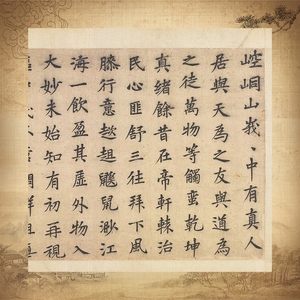 崆峒山峩〻中有真人
居與天為之友與道為
之徒萬物等觸蠻乾坤
真緒餘昔在帝軒轅治
民心匪舒三往拜下風
膝行意趑趄鼴鼠渺江
海一飲盈其虛外物入
大妙未始知有初再現